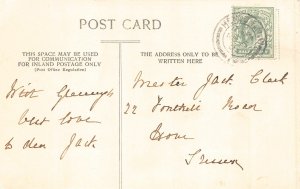 POST CARD
THIS SPACE MAY BE USED
FOR COMMUNICATION
FOR INLAND POSTAGE ONLY
(Post Office Regulation)
THE ADDRESS ONLY TO BE
WRITTEN HERE
With
best love
to dear Jack
Master Jack Clark
22 Fonthill Road
Hove
Sussex